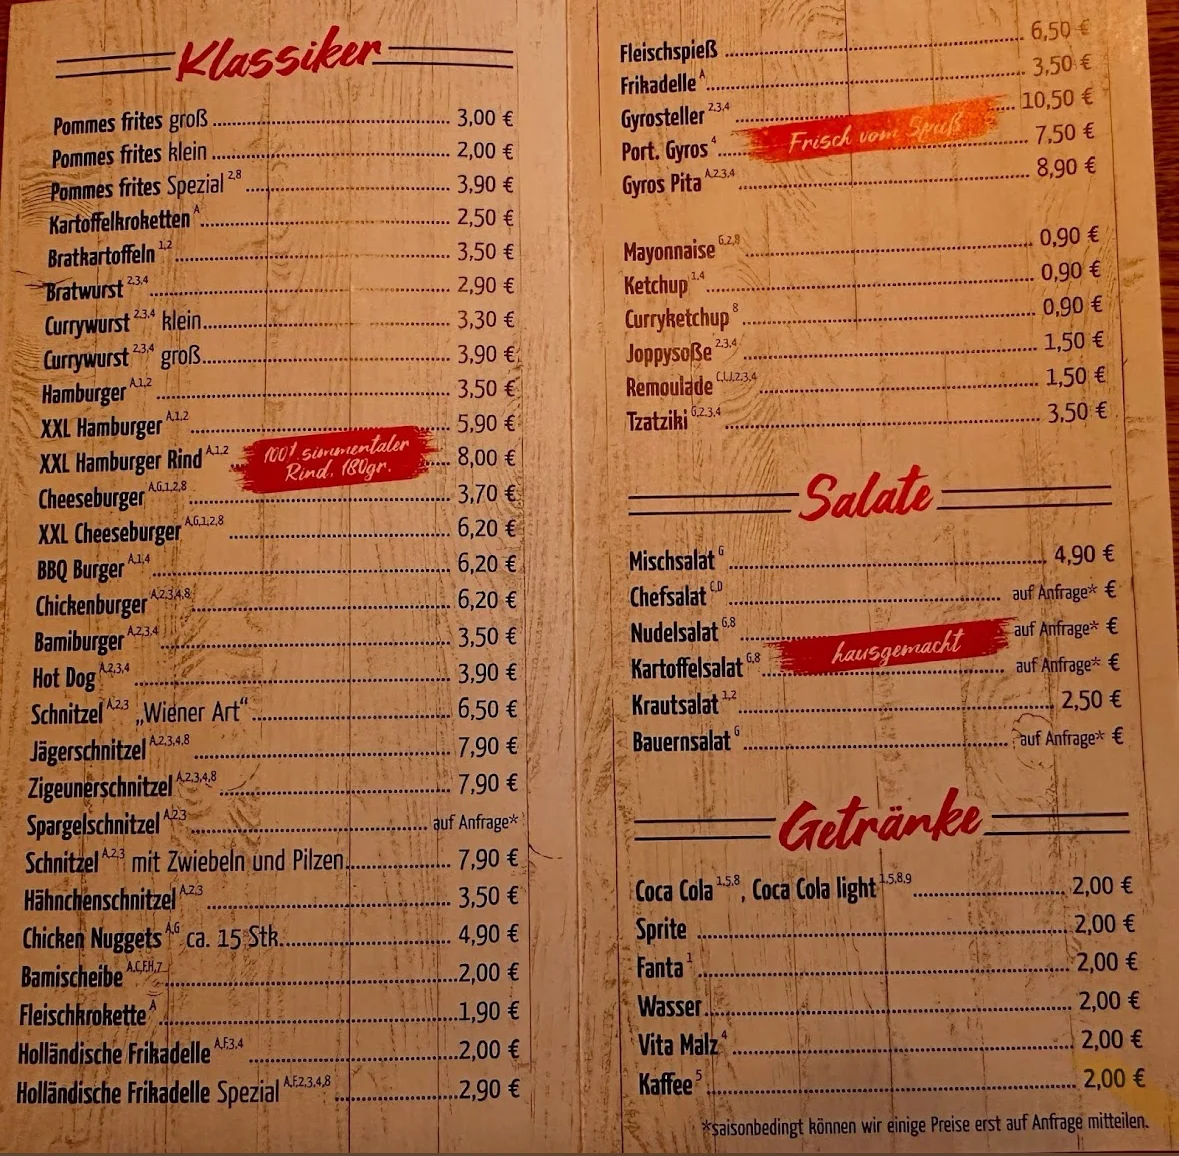 Klassiker
Pommes frites groß 3,00 €
Pommes frites klein 2,00 €
Pommes frites Spezial 2,8 3,90 €
Kartoffelkroketten A 2,50 €
Bratkartoffeln 1,2 3,50 €
Bratwurst 2,3,4 2,90 €
Currywurst 2,3,4 klein 3,30 €
Currywurst 2,3,4 groß 3,90 €
Hamburger A,1,2 3,50 €
XXL Hamburger A,1,2 5,90 €
XXL Hamburger Rind A,1,2 8,00 €
100% simmentaler
Rind, 180gr.
Cheeseburger A,G,1,2,8 3,70 €
XXL Cheeseburger A,G,1,2,8 6,20 €
BBQ Burger A,1,4 6,20 €
Chickenburger A,2,3,4,8 6,20 €
Bamiburger A,2,3,4 3,50 €
Hot Dog A,2,3,4 3,90 €
Schnitzel A,2,3 „Wiener Art“ 6,50 €
Jägerschnitzel A,2,3,4,8 7,90 €
Zigeunerschnitzel A,2,3,4,8 7,90 €
Spargelschnitzel A,2,3 auf Anfrage*
Schnitzel A,2,3 mit Zwiebeln und Pilzen 7,90 €
Hähnchenschnitzel A,2,3 3,50 €
Chicken Nuggets A,G ca. 15 Stk. 4,90 €
Bamischeibe A,C,F,H,7 2,00 €
Fleischkrokette A 1,90 €
Holländische Frikadelle A,F,3,4 2,00 €
Holländische Frikadelle Spezial A,F,2,3,4,8 2,90 €
Fleischspieß 6,50 €
Frikadelle A 3,50 €
Gyrosteller 2,3,4 10,50 €
Frisch vom Spieß
Port. Gyros 4 7,50 €
Gyros Pita A,2,3,4 8,90 €
Mayonnaise G,2,8 0,90 €
Ketchup 1,4 0,90 €
Curryketchup 8 0,90 €
Joppysoße 2,3,4 1,50 €
Remoulade C,I,J,2,3,4 1,50 €
Tzatziki G,2,3,4 3,50 €
Salate
Mischsalat G 4,90 €
Chefsalat C,D auf Anfrage* €
Nudelsalat G,8 auf Anfrage* €
hausgemacht
Kartoffelsalat G,8 auf Anfrage* €
Krautsalat 1,2 2,50 €
Bauernsalat G auf Anfrage* €
Getränke
Coca Cola 1,5,8, Coca Cola light 1,5,8,9 2,00 €
Sprite 2,00 €
Fanta 1 2,00 €
Wasser 2,00 €
Vita Malz 4 2,00 €
Kaffee 5 2,00 €
*saisonbedingt können wir einige Preise erst auf Anfrage mitteilen.